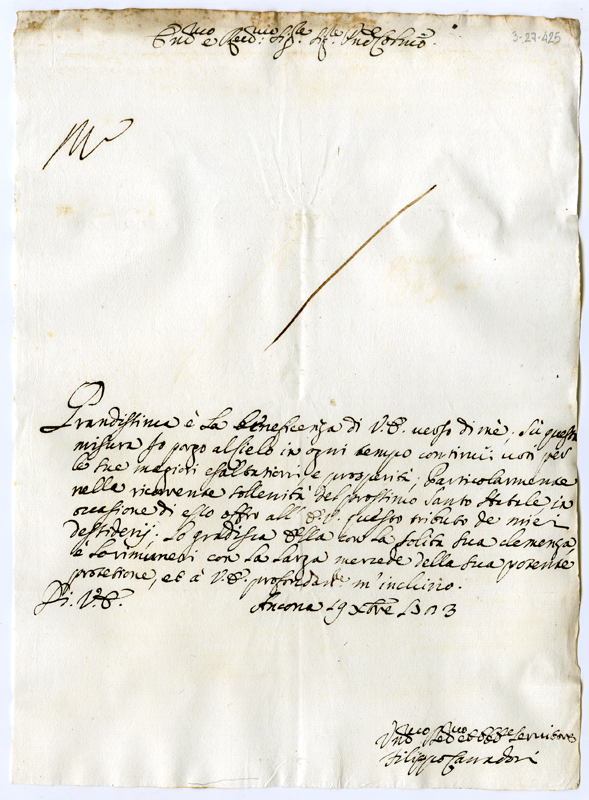 3-27-425
Grandissima è La beneficenza di V.E. verso di mè; Sù questa
misura Io porgo al Cielo in ogni tempo continui voti per
le sue magiori esaltationi, e prosperità; Particolarmente
nella ricorrente sollenità del prossimo Santo Natale in
occasione di esso offro all' E.V. questo tributo de miei
desiderij. Lo gradisca Ella con La solita sua clemenza,
e Lo rimuneri con La Larga mercede della sua potente
protetione, et à V.E. profondam.te m'inchino.
Di V.E. Ancona 19 Xbre
Servitore
Filippo